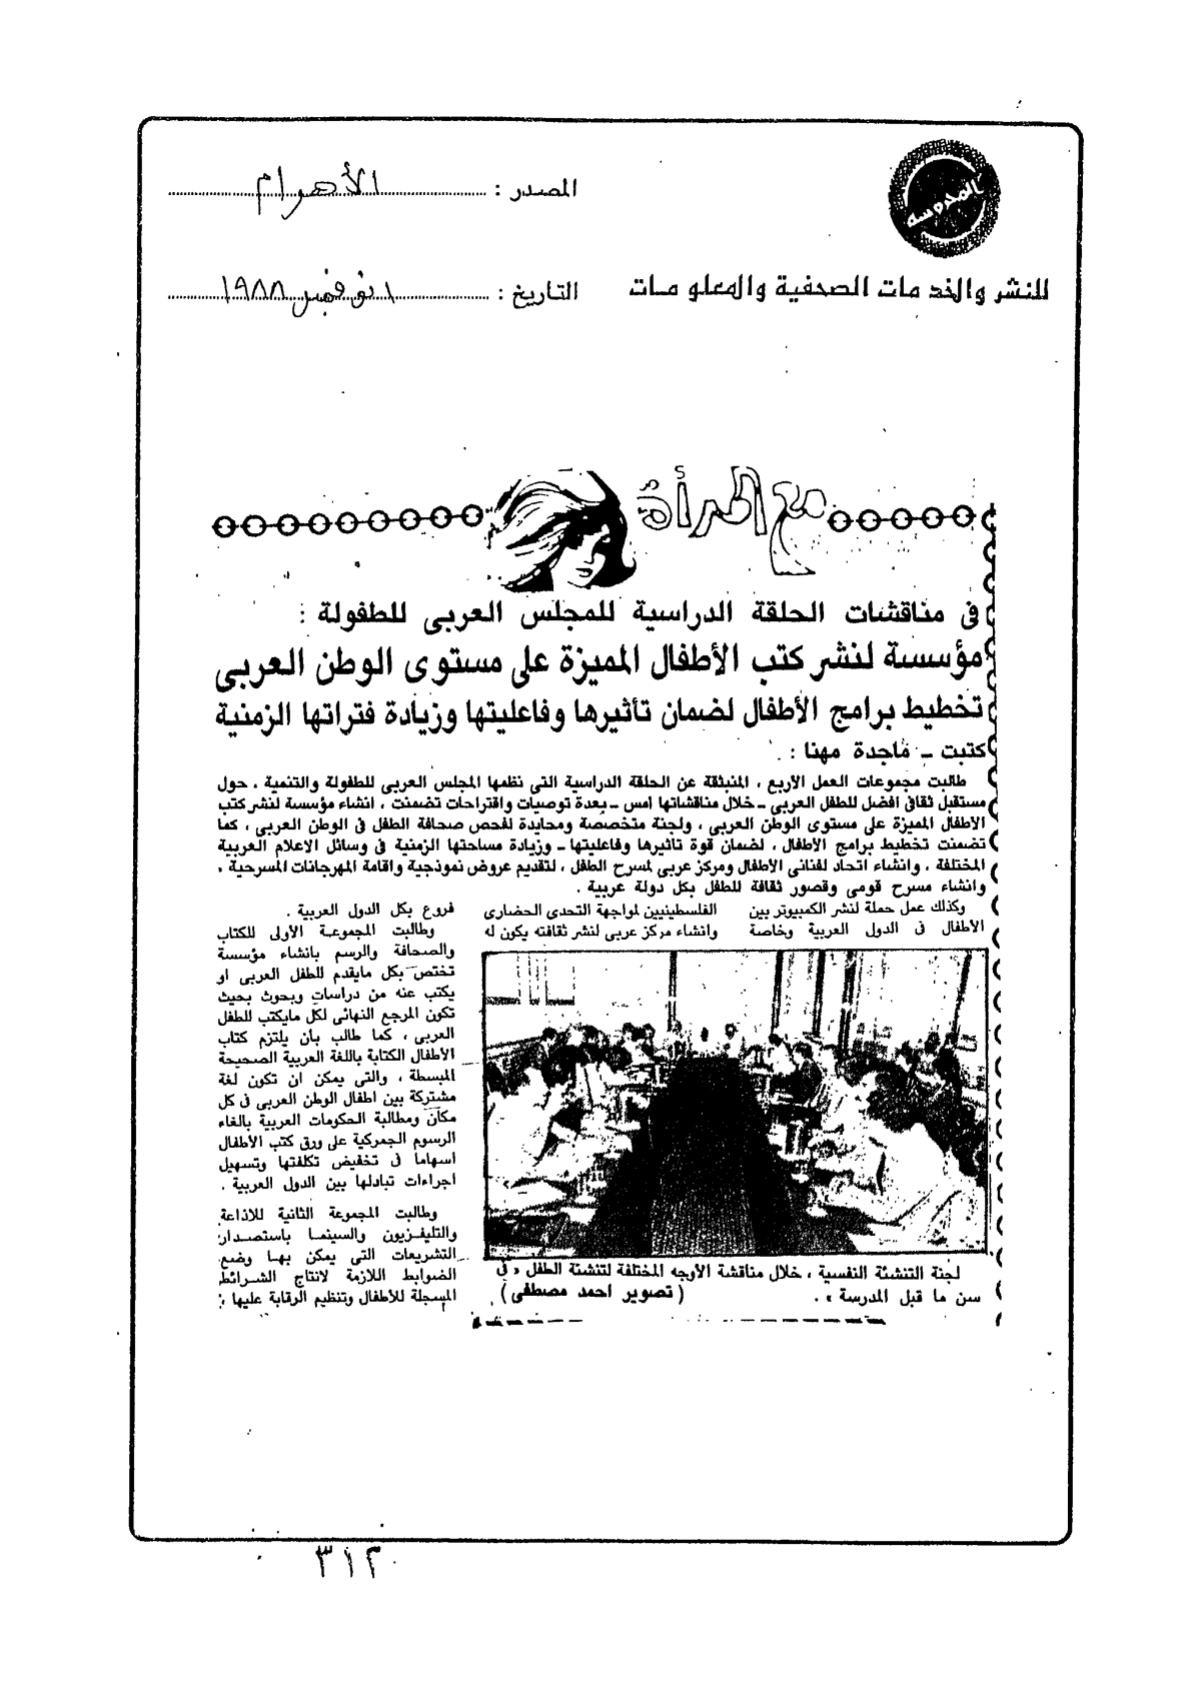 المدوسه
للنشر والخدمات الصحفية والمعلومات
المصدر : الأهرام
التاريخ : ١ نوفمبر ١٩٨٨
مع المرأة
فى مناقشات الحلقة الدراسية للمجلس العربى للطفولة :
مؤسسة لنشر كتب الأطفال المميزة على مستوى الوطن العربى
تخطيط برامج الأطفال لضمان تأثيرها وفاعليتها وزيادة فتراتها الزمنية
كتبت - ماجدة مهنا :
طالبت مجموعات العمل الاربع ، المنبثقة عن الحلقة الدراسية التى نظمها المجلس العربى للطفولة والتنمية ، حول
مستقبل ثقافى افضل للطفل العربى - خلال مناقشاتها امس - بعدة توصيات واقتراحات تضمنت ، انشاء مؤسسة لنشر كتب
الاطفال المميزة على مستوى الوطن العربى ، ولجنة متخصصة ومحايدة لفحص صحافة الطفل فى الوطن العربى ، كما
تضمنت تخطيط برامج الاطفال ، لضمان قوة تاثيرها وفاعليتها - وزيادة مساحتها الزمنية فى وسائل الاعلام العربية
المختلفة ، وانشاء اتحاد لفنانى الاطفال ومركز عربى لمسرح الطفل ، لتقديم عروض نموذجية واقامة المهرجانات المسرحية ،
وانشاء مسرح قومى وقصور ثقافة للطفل بكل دولة عربية .
وكذلك عمل حملة لنشر الكمبيوتر بين
الأطفال فى الدول العربية وخاصة
الفلسطينيين لمواجهة التحدى الحضارى
وانشاء مركز عربى لنشر ثقافته يكون له
فروع بكل الدول العربية .
وطالبت المجموعة الأولى للكتاب
والصحافة والرسم بانشاء مؤسسة
تختص بكل مايقدم للطفل العربى او
يكتب عنه من دراسات وبحوث بحيث
تكون المرجع النهائى لكل مايكتب للطفل
العربى ، كما طالب بأن يلتزم كتاب
الأطفال الكتابة باللغة العربية الصحيحة
المبسطة ، والتى يمكن ان تكون لغة
مشتركة بين اطفال الوطن العربى فى كل
مكان ومطالبة الحكومات العربية بالغاء
الرسوم الجمركية على ورق كتب الأطفال
اسهاما فى تخفيض تكلفتها وتسهيل
اجراءات تبادلها بين الدول العربية .
وطالبت المجموعة الثانية للاذاعة
والتليفزيون والسينما باستصدار
التشريعات التى يمكن بها وضع
الضوابط اللازمة لانتاج الشرائط
المسجلة للأطفال وتنظيم الرقابة عليها .
لجنة التنشئة النفسية ، خلال مناقشة الأوجه المختلفة لتنشئة الطفل « فى
سن ما قبل المدرسة » . ( تصوير احمد مصطفى )
٣١٢